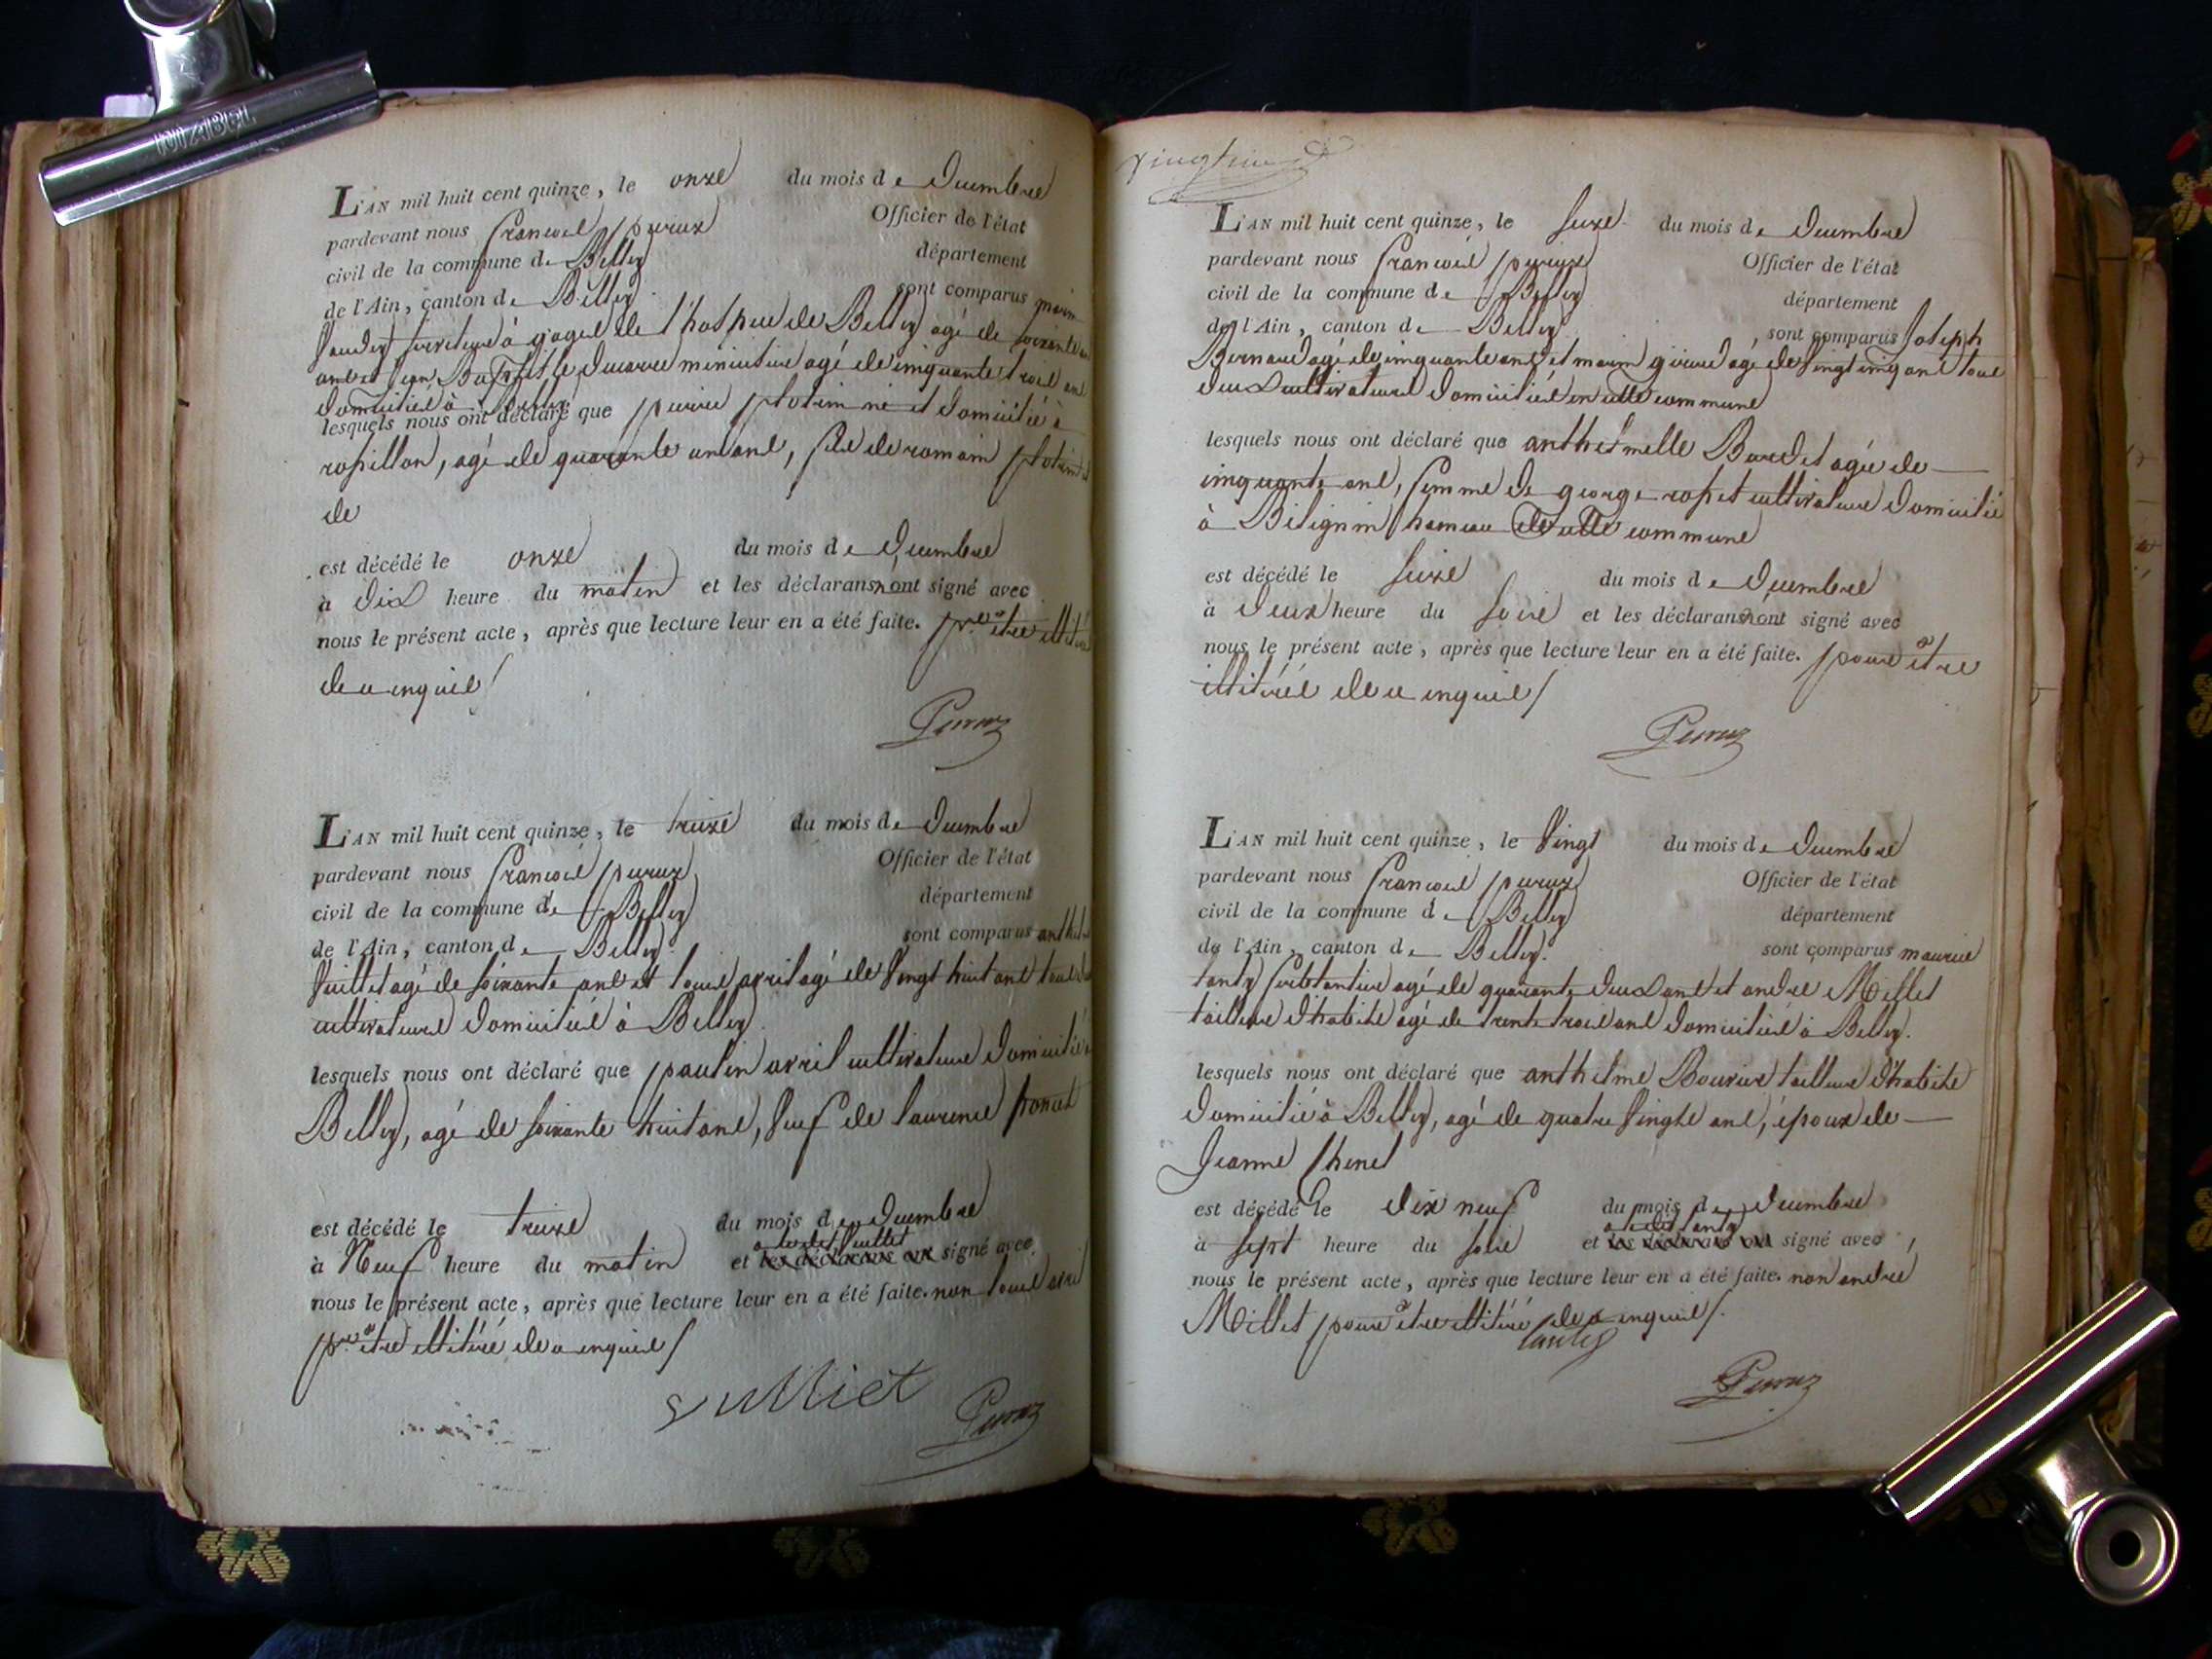 L'AN mil huit cent quinze, le onze du mois de Decembre
pardevant nous francois peruex Officier de l'état
civil de la commune de Belley département
de l'Ain, canton de Belley sont comparus
serviteur à gage de l'hospice de Belley agé de soixante
ans et Jean Baptiste ducarre agé de cinquante trois ans
domiciliés à Belley
lesquels nous ont déclaré que pierre plotim né et domicilié à
ropillon, agé de quarante un ans, fils de romain plotim
de
est décédé le onze du mois de Decembre
à Dix heure du matin et les déclarans n'ont signé avec
nous le présent acte, après que lecture leur en a été faite. pr etre
de ce enquis/
Peruz
L'AN mil huit cent quinze, le treize du mois de Decembre
pardevant nous francois peruex Officier de l'état
civil de la commune de Belley département
de l'Ain, canton de Belley sont comparus
Vuillet agé de soixante ans et louis avril agé de Vingt huit ans tous
cultivateurs domiciliés à Belley
lesquels nous ont déclaré que paulin avril cultivateur domicilié
Belley, agé de soixante huit ans, veuf de laurence poncet
est décédé le treize du mois de Decembre
a ledit Vuillet
à Neuf heure du matin et les déclarans ont signé avec
nous le présent acte, après que lecture leur en a été faite. non louis avril
pr etre illitéré de ce enquis/
Vulliet
Peruz
vingt
L'AN mil huit cent quinze, le seize du mois de Decembre
pardevant nous francois peruex Officier de l'état
civil de la commune de Belley département
de l'Ain, canton de Belley sont comparus Joseph
Bernard agé de cinquante ans et marin girud agé de Vingt cinq ans tous
deux cultivateurs domiciliés en cette commune
lesquels nous ont déclaré que anthelmette Burdet agée de
cinquante ans, femme de george ropet cultivateur domicilié
à Bilignin hameau de cette commune
est décédé le seize du mois de Decembre
à Deux heure du soir et les déclarans n'ont signé avec
nous le présent acte, après que lecture leur en a été faite. pour etre
illitérés de ce enquis/
Peruz
L'AN mil huit cent quinze, le Vingt du mois de Decembre
pardevant nous francois peruex Officier de l'état
civil de la commune de Belley département
de l'Ain, canton de Belley. sont comparus maurice
tantz agé de quarante deux ans et andre Millet
tailleur d'habits agé de trente trois ans domiciliés à Belley.
lesquels nous ont déclaré que anthelme Bouvier tailleur d'habits
domicilié à Belley, agé de quatre Vingts ans, époux de
Jeanne Chenel
est décédé le dix neuf du mois de Decembre
a ledit tantz
à sept heure du soir et les déclarans ont signé avec
nous le présent acte, après que lecture leur en a été faite. non andre
Millet pour etre illitéré de ce enquis/.
Peruz